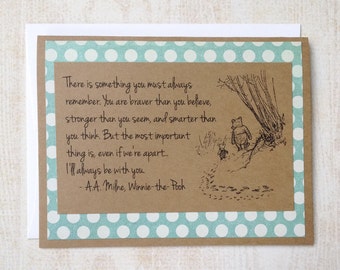 There is something you must always
remember. You are braver than you believe,
stronger than you seem, and smarter than
you think. But the most important
thing is, even if we're apart...
I'll always be with you.
- A.A. Milne, Winnie-the-Pooh